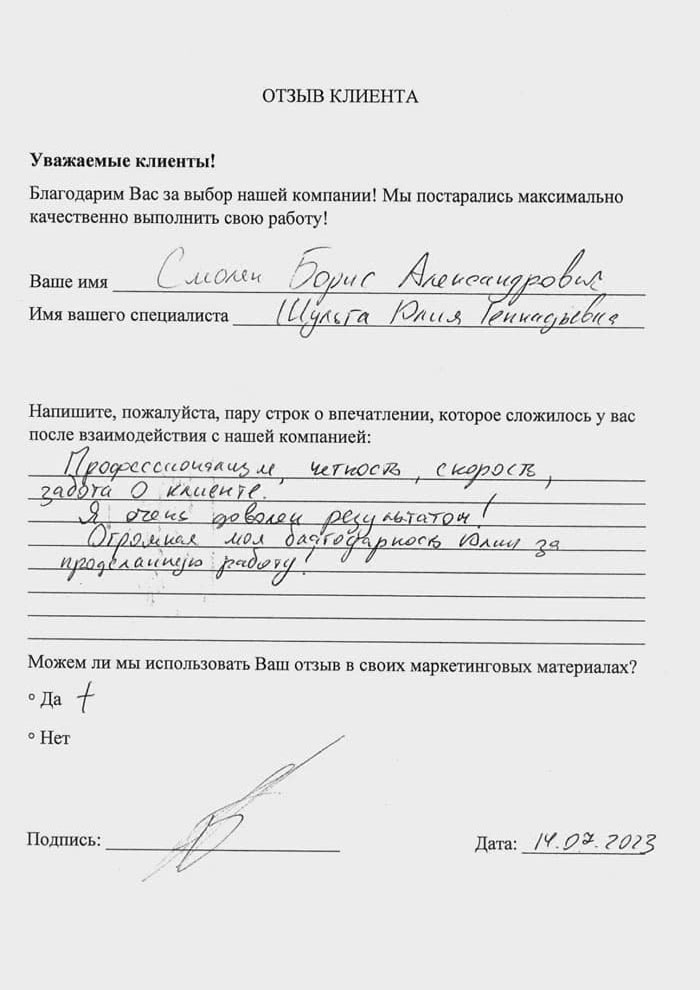 ОТЗЫВ КЛИЕНТА
Уважаемые клиенты!
Благодарим Вас за выбор нашей компании! Мы постарались максимально
качественно выполнить свою работу!
Ваше имя Смолен Борис Александрович
Имя вашего специалиста Шульга Юлия Геннадьевна
Напишите, пожалуйста, пару строк о впечатлении, которое сложилось у вас
после взаимодействия с нашей компанией:
Профессионализм, четкость, скорость,
забота о клиенте.
Я очень доволен результатом!
Огромная моя благодарность Юлии за
проделанную работу!
Можем ли мы использовать Ваш отзыв в своих маркетинговых материалах?
° Да +
° Нет
Подпись:
Дата: 14.07.2023